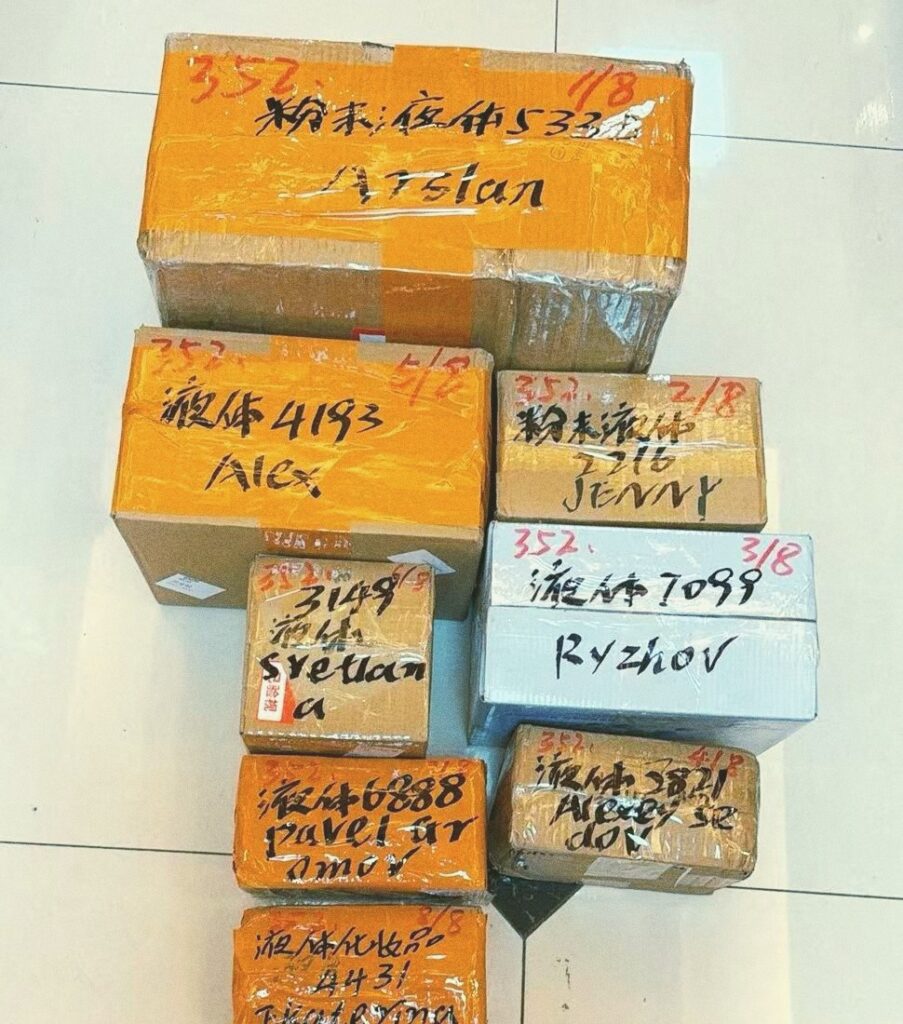 352. 1/8
粉末液体533
Arslan
352. 5/8
液体4193
Alex
352. 2/8
粉末液体
2216
JENNY
352. 3/8
液体7099
Ryzhov
352. 6/8
3149
液体
svetlan
a
352. 4/8
液体3821
Alexey se
dov
352. /8
液体6888
pavel ar
omov
352. 8/8
液体化妆品
4431